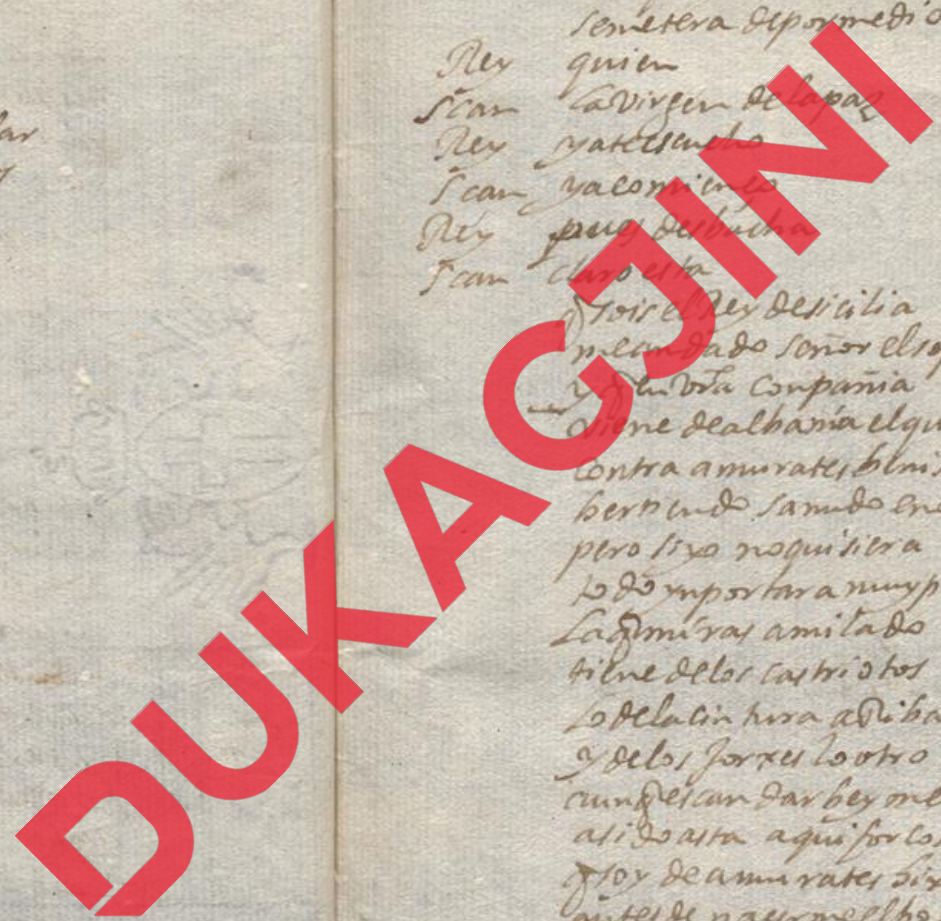 lar
y
semetera depormedio
Rey quien
scan la Virgen de la paz
Rey ya te escucho
scan ya comienço
Rey pues desbucha
scan claro esta
q̃ sois el Rey de sicilia
me an dado señor el
y q̃ en vr̃a conpañia
viene de albania el
contra amurates
sañudo
pero sixo no quisiera
todo ynportara muy
la q̃ miras a mi lado
tiene delos castriotos
lo dela cintura a
y delos jorxes lo otro
aunq̃ escandarbey me
asido asta aqui por los
q̃ soy de amurates
antes de
DUKAGJINI